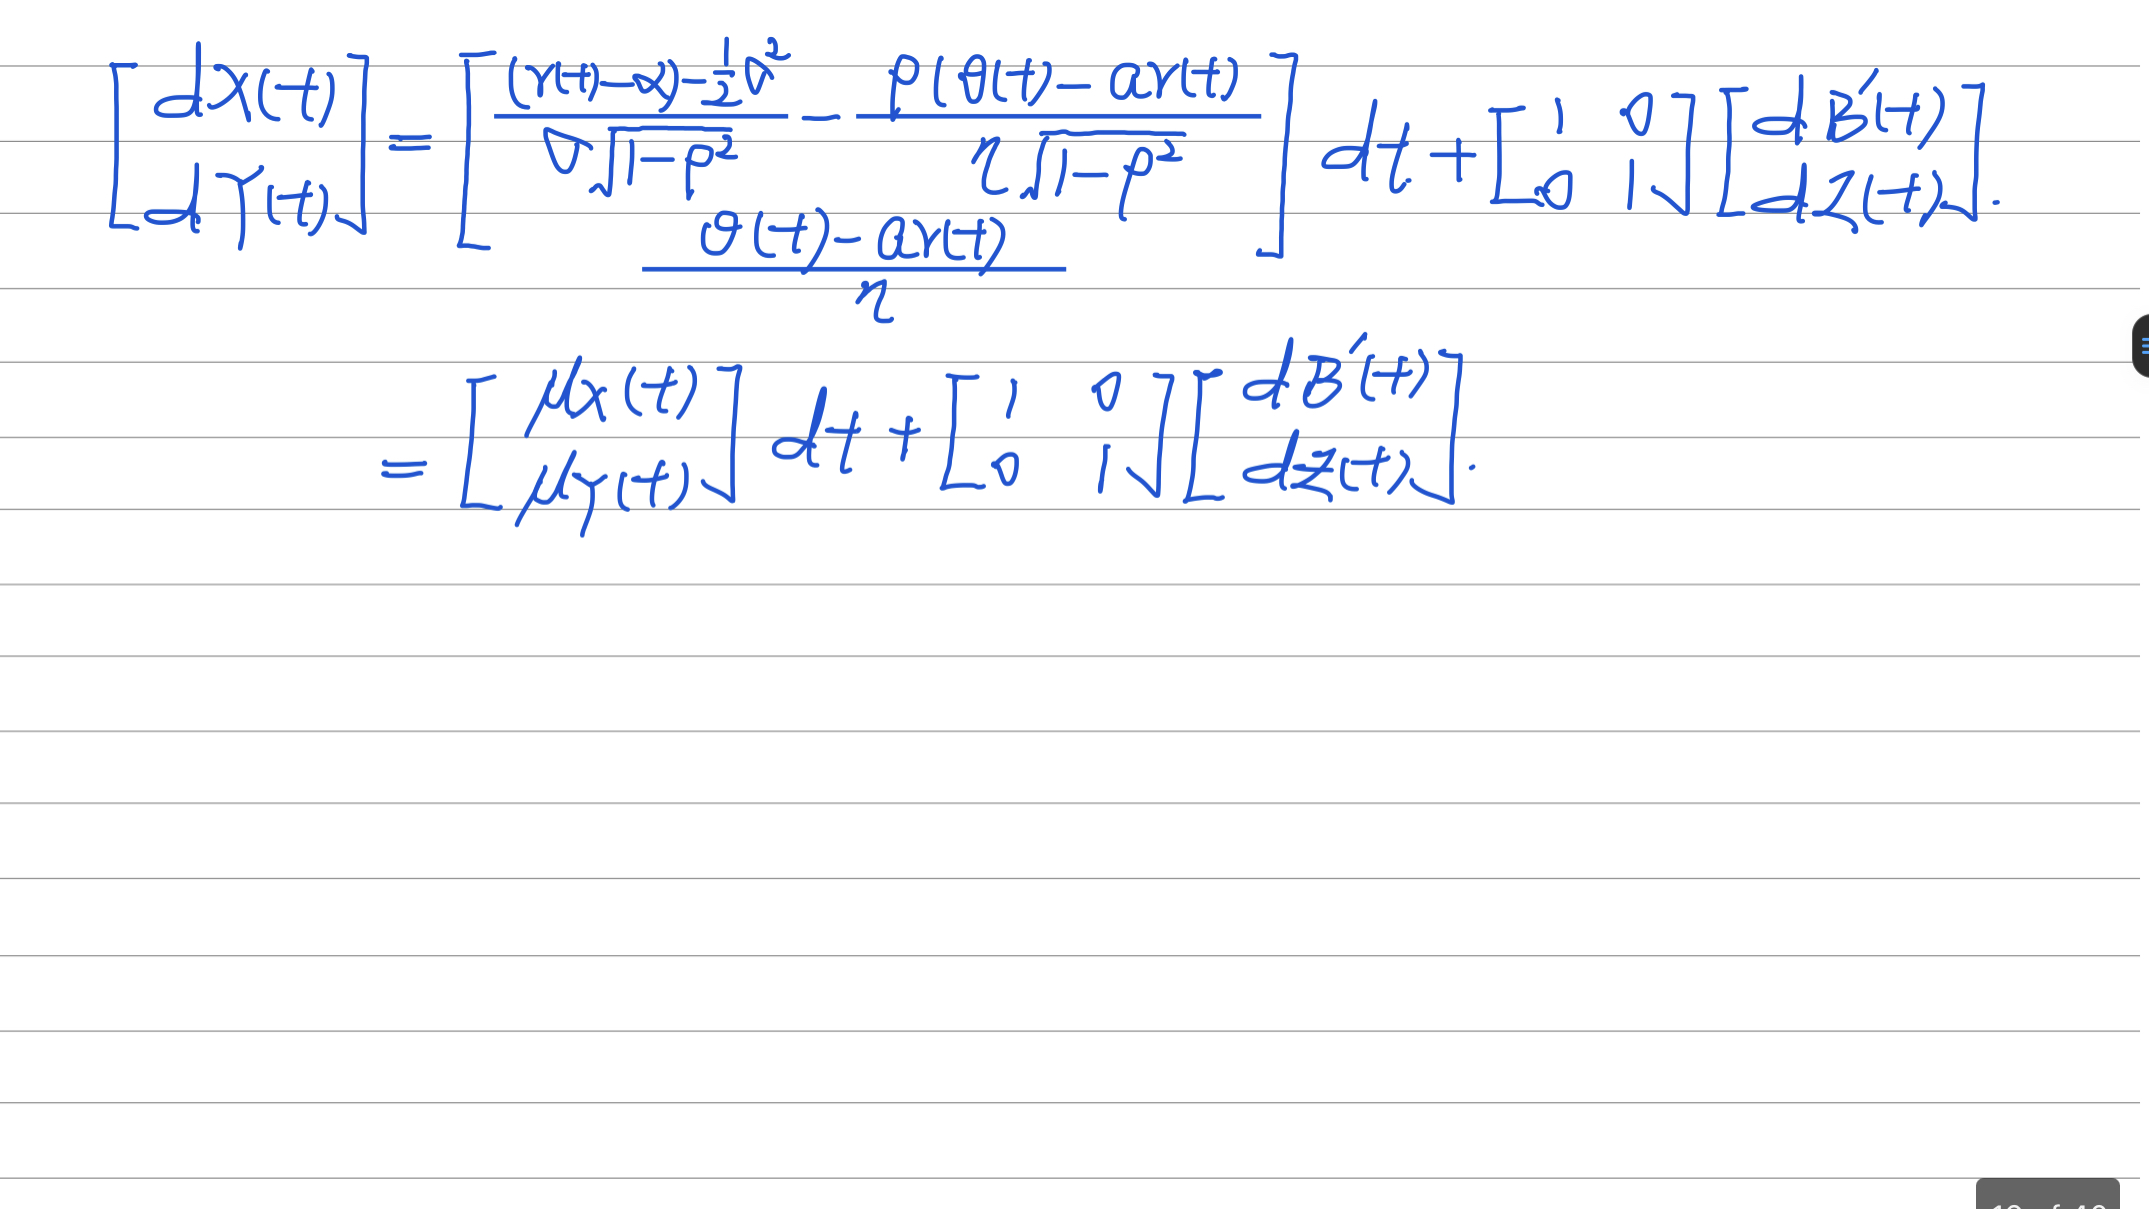 [dX(t) dY(t)] = [((r(t)-α)-½σ²)/(σ√(1-ρ²)) - ρ(θ(t)-ar(t))/(η√(1-ρ²)) (θ(t)-ar(t))/η] dt + [1 0 0 1] [dB'(t) dZ(t)].
= [μx(t) μY(t)] dt + [1 0 0 1] [dB'(t) dZ(t)].